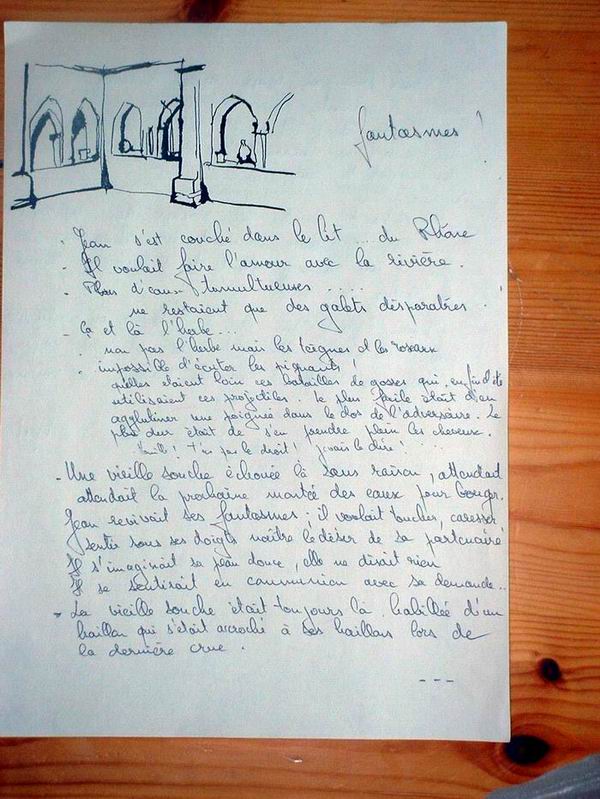 fantasmes !
. Jean s'est couché dans le lit ... du Rhône
- Il voulait faire l'amour avec la rivière.
. Plus d'eaux tumultueuses .....
ne restaient que des galets disparates.
- Ça et là l'herbe...
. non pas l'herbe mais les teignes et les roseaux
. impossible d'éviter les piquants !
qu'elles étaient loin ces batailles de gosses qui, en fin d'été
utilisaient ces projectiles. Le plus facile était d'en
agglutiner une poignée dans le dos de l'adversaire. Le
plus dur était de s'en prendre plein les cheveux.
! T'as pas le droit ! j'vais le dire !
- Une vieille souche échouée là sans raison, attendait
attendait la prochaine montée des eaux pour bouger.
Jean revivait ses fantasmes ; il voulait toucher, caresser
sentir sous ses doigts naître le désir de sa partenaire
Il s'imaginait sa peau douce, elle ne disait rien
Il se sentirait en communion avec sa demande..
- La vieille souche était toujours là habillée d'un
haillon qui s'était accroché à ses haillons lors de
la dernière crue.
---